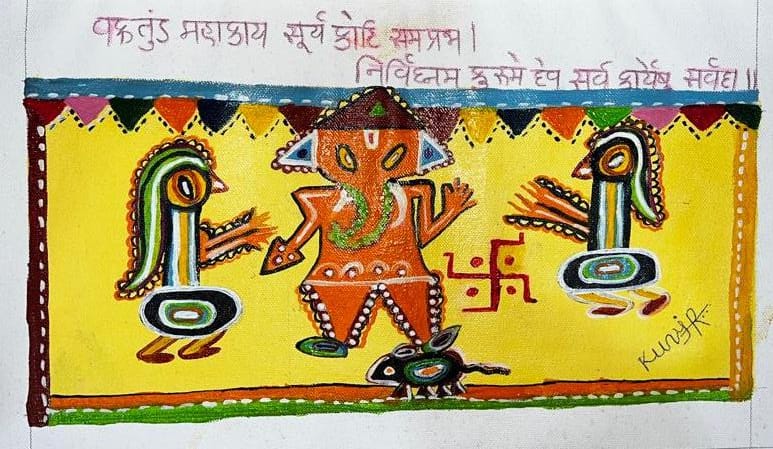 वक्रतुंड महाकाय सूर्य कोटि समप्रभ।
निर्विघ्नम कुरुमे देव सर्व कार्येषु सर्वदा॥
KunjR...